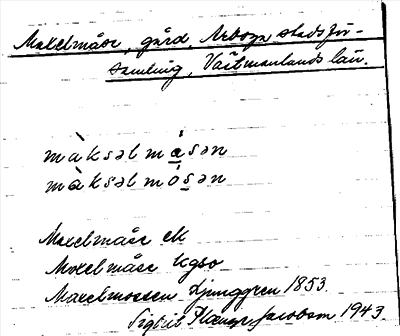 Maxelmåse, gård, Arboga stadsför-
samling, Västmanlands län.
màksəl másən
màksəl mósən
Maxelmåse ek
Maxelmåse hgso
Maxelmossen Ljunggren 1853.
Sigrid Jacobson 1943.